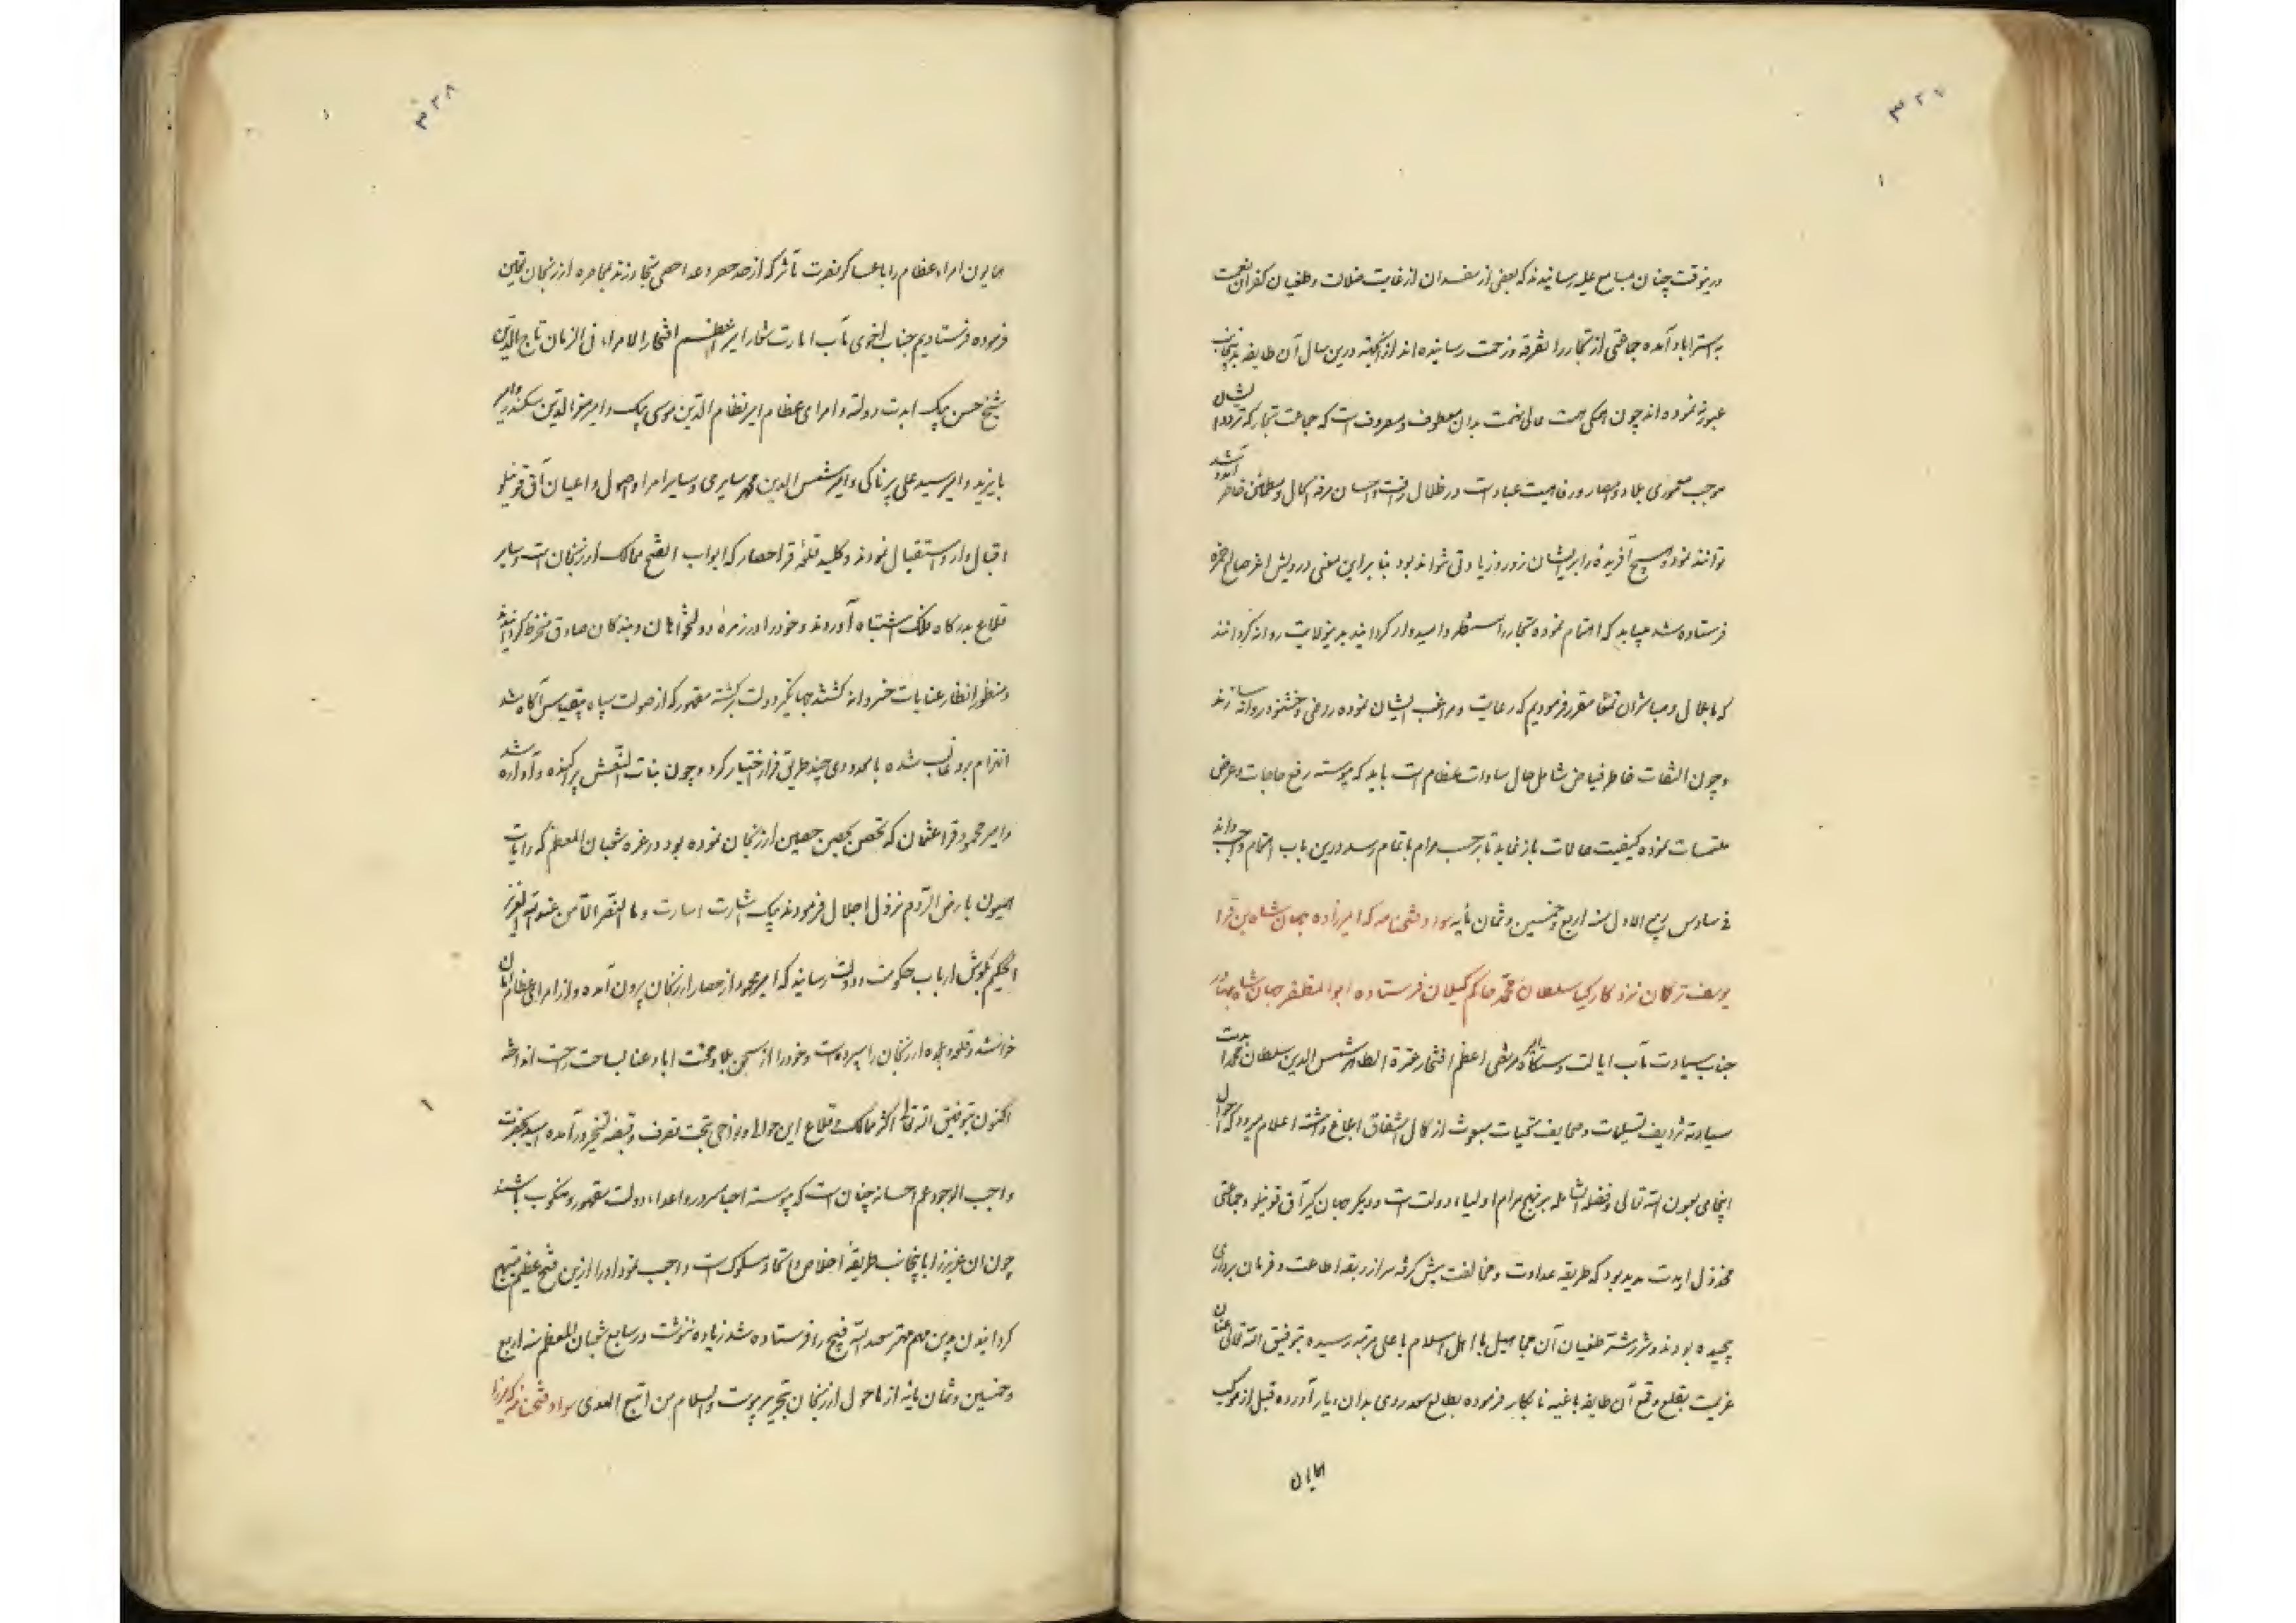 ۳۲۷
درینوقت چنان بمسامع علیه رسانیدند که بعضی از مفسدان از غایت ضلالت و طغیان کفران نعمت
به استراباد آمده جماعتی از تجار را تفرقه و زحمت رسانیده‌اند از آنجهة درین سال آن طایفه بدینجانب
عبور ننموده‌اند چون همگی همت عالی نهمت بدان معطوف و مصروف است که جماعت تجار که تردد ایشان
موجب معموری بلاد و امصار و رفاهیت عباد است در ظلال رأفت و احسان مرفه الحال و مطمئن خاطر آمد و شد
توانند نمود و هیچ آفریده را بر ایشان زور و زیادتی نتواند بود بنا براین معنی درویش اعز صالح حمزه
فرستاده شد میباید که اهتمام نموده تجار را مستظهر و امیدوار گردانیده بدینولایت روانه گردانند
که با عمال و مباشران تمغا مقرر فرمودیم که رعایت و مراقبت ایشان نموده راضی و خشنود روانه سازند
و چون التفات خاطر فیاض شامل حال سادات عظام است باید که پیوسته رفع حاجات و عرض
ملتمسات نموده کیفیت حالات باز نماید تا برحسب مرام باتمام رسد درین باب اهتمام واجب داند
فی سادس ربیع الاول سنه اربع و خمسین و ثمان مأیه سواد فتحنامه که امیرزاده جهان شاه بن قرا
یوسف ترکمان نزد کارکیا سلطان محمد حاکم گیلان فرستاده ابوالمظفر جهان شاه بهادر
جناب سیادت مآب ایالت دستگاه مرتضی اعظم افتخار عترة الطاهر شمس الدین سلطان محمد ادیمت
سیادته تسلیمات و صحایف تحیات مبعوث از کمال اشفاق ابلاغ داشته اعلام میرود که احوال
اینجایی بعون الله تعالی و فضله الشامله بر نهج مرام اولیاء دولت است و دیگر جهان گیر آق قوینلو و جماعتی
مخذول ابدت مدید بود که طریقه عداوت و مخالفت پیش گرفته سر از ربقه اطاعت و فرمان برداری
پیچیده بودند و شر و شتر طغیان آن مجاهیل با اهل اسلام باعلی مرتبه رسیده بتوفیق الله تعالی عنان
عزیمت بقلع و قمع آن طایفه باغیه نابکار فرموده بطالع سعد روی بدان دیار آورده قبل از موکب
همایون
۳۲۸
همایون امراء عظام را با عساکر نصرت مآثر که از حد حصر و عد احصی متجاوزند بمحاصره ارزنجان تعیین
فرموده فرستادیم جناب اخوی مآب امارت شعار امیر اعظم افتخار الامراء فی الزمان تاج الدین
شیخ حسن بیک ابدت دولته و امرای عظام امیر نظام الدین موسی بیک و امیر عزالدین سکندر و امیر
بایزید و امیر سید علی پرناکی و امیر شمس الدین محمد سایرمی و سایر امرا و اصول و اعیان آق قوینلو
اقبال وار استقبال نمودند و کلید قلعه قراحصار که ابواب الفتح ممالک ارزنجان است و سایر
قلاع بدرگاه فلک اشتباه آوردند و خود را در زمره دولتخواهان و بندگان صادق منخرط گردانیدند
و منظور انظار عنایات خسروانه گشتند جهانگیر دولت برگشته مقهور که از صولت سپاه بیقیاس آگاه شد
انهزام برو غالب شده با معدودی چند طریق فرار اختیار کرد و چون بنات النعش پراکنده و آواره شد
و امیر محمود قرا عثمان که تحصن بحصن حصین ارزنجان نموده بود در غره شعبان المعظم که رایات
همیون بارض الروم نزول اجلال فرمودند پیک بشارت اشارت و ما النصر الا من عند الله العزیز
الحکیم بگوش ارباب حکومت و دولت رسانید که امیر محمود از حصار ارزنجان بیرون آمده و از امرای عظام امان
خواسته و قلعه و بلده ارزنجان را سپرده است و خود را از سجن بلا و محنت آباد عنا بساحت راحت انداخته
اکنون بتوفیق الله تعالی اکثر ممالک و قلاع این حوالی و نواحی بتحت تصرف و قبضه تسخیر درآمده امید بحضرت
واجب الوجود عم احسانه چنان است که پیوسته احبا مسرور و اعداء دولت مقهور و منکوب باشند
چون ان عزیز را با اینجانب طریقهٔ اخلاص و اتحاد مسلوک است واجب نمود او را ازین فتح عظیم مبتهج
گردانیدن بدین مهم مهتر سعد الله قیچی را فرستاده شد زیاده ننوشت در سابع شعبان المعظم سنه اربع
و خمسین و ثمان مایه از ماحول ارزنجان تحریر پیوست والسلام من اتبع الهدی سواد فتحنامه که میرزا